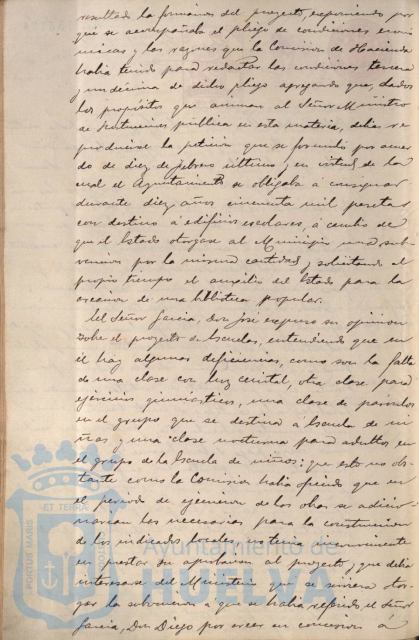 resultado la formación del proyecto, exponiendo por
qué se acompañaba el pliego de condiciones econó-
micas y las razones que la Comisión de Hacienda
había tenido para redactar las condiciones tercera
y undécima de dicho pliego agregando que, dados
los propósitos que animan al Señor Ministro
de Instrucción pública en esta materia, debía re-
producirse la petición que se formuló por acuer-
do de diez de febrero último, en virtud de la
cual el Ayuntamiento se obligaba á consignar
durante diez años cincuenta mil pesetas
con destino á edificios escolares, á cambio de
que el Estado otorgase al Municipio una sub-
vención por la misma cantidad, y solicitando al
propio tiempo el auxilio del Estado para la
creación de una biblioteca popular.
El Señor García, Don José expuso su opinión
sobre el proyecto de Escuelas, entendiendo que en
él hay algunas deficiencias, como son la falta
de una clase con luz cenital, otra clase para
ejercicios gimnásticos, una clase de párvulos
en el grupo que se destina a Escuela de ni-
ñas y una clase nocturna para adultos en
el grupo de la Escuela de niños: que esto no obs-
tante como la Comisión había opinado que en
el período de ejecución de las obras se adicio-
narían las necesarias para la construcción
de los indicados locales, no tenía inconveniente
en prestar su aprobación al proyecto, y que debía
interesarse del Ministerio que se sirviera otor-
gar la subvención á que se había referido el Señor
García, Don Diego por creer en conciencia á
PORTUS MARIS
ET TERRAE
Ayuntamiento de
HUELVA